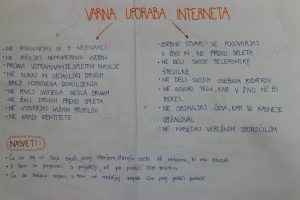 VARNA UPORABA INTERNETA
• NE POGOVARJAJ SE Z NEZNANCI
• NE POŠILJAJ NEPRIMERNIH VSEBIN
• PRIJAVI USTRAHOVANJE, SPLETNO NASILJE
• NE SLIKAJ IN OBJAVLJAJ DRUGIH
BREZ NJIHOVEGA DOVOLJENJA
• NE POVEJ SVOJEGA GESLA DRUGIM
• NE ŽALI DRUGIH PREKO SPLETA
• NE USTVARJAJ LAŽNIH PROFILOV
• NE KRADI IDENTITETE
• OSEBNE STVARI SE POGOVARJAJ
V ŽIVO IN NE PREKO SPLETA
• NE DELI SVOJE TELEFONSKE
ŠTEVILKE
• NE DELI SVOJIH OSEBNIH PODATKOV
• NE GOVORI TEGA, KAR V ŽIVO NE BI
REKEL
• NE OBJAVLJAJ ČESA, KAR BI KASNEJE
OBŽALOVAL
• NE NASEDAJ VERIŽNIM SPOROČILOM
NASVETI:
• Če se kaj od tega zgodi povej staršem,
• O tem se pogovori s prijatelji, ali pa pokliči TOM telefon